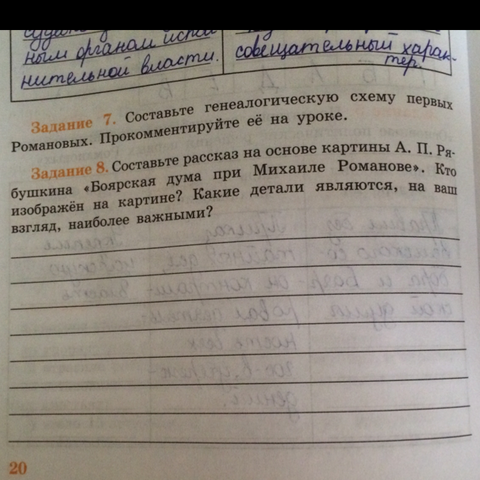 ным органом испол
нительной власти.
совещательный харак-
тер.
Задание 7. Составьте генеалогическую схему первых
Романовых. Прокомментируйте её на уроке.
Задание 8. Составьте рассказ на основе картины А. П. Ря-
бушкина «Боярская дума при Михаиле Романове». Кто
изображён на картине? Какие детали являются, на ваш
взгляд, наиболее важными?
20